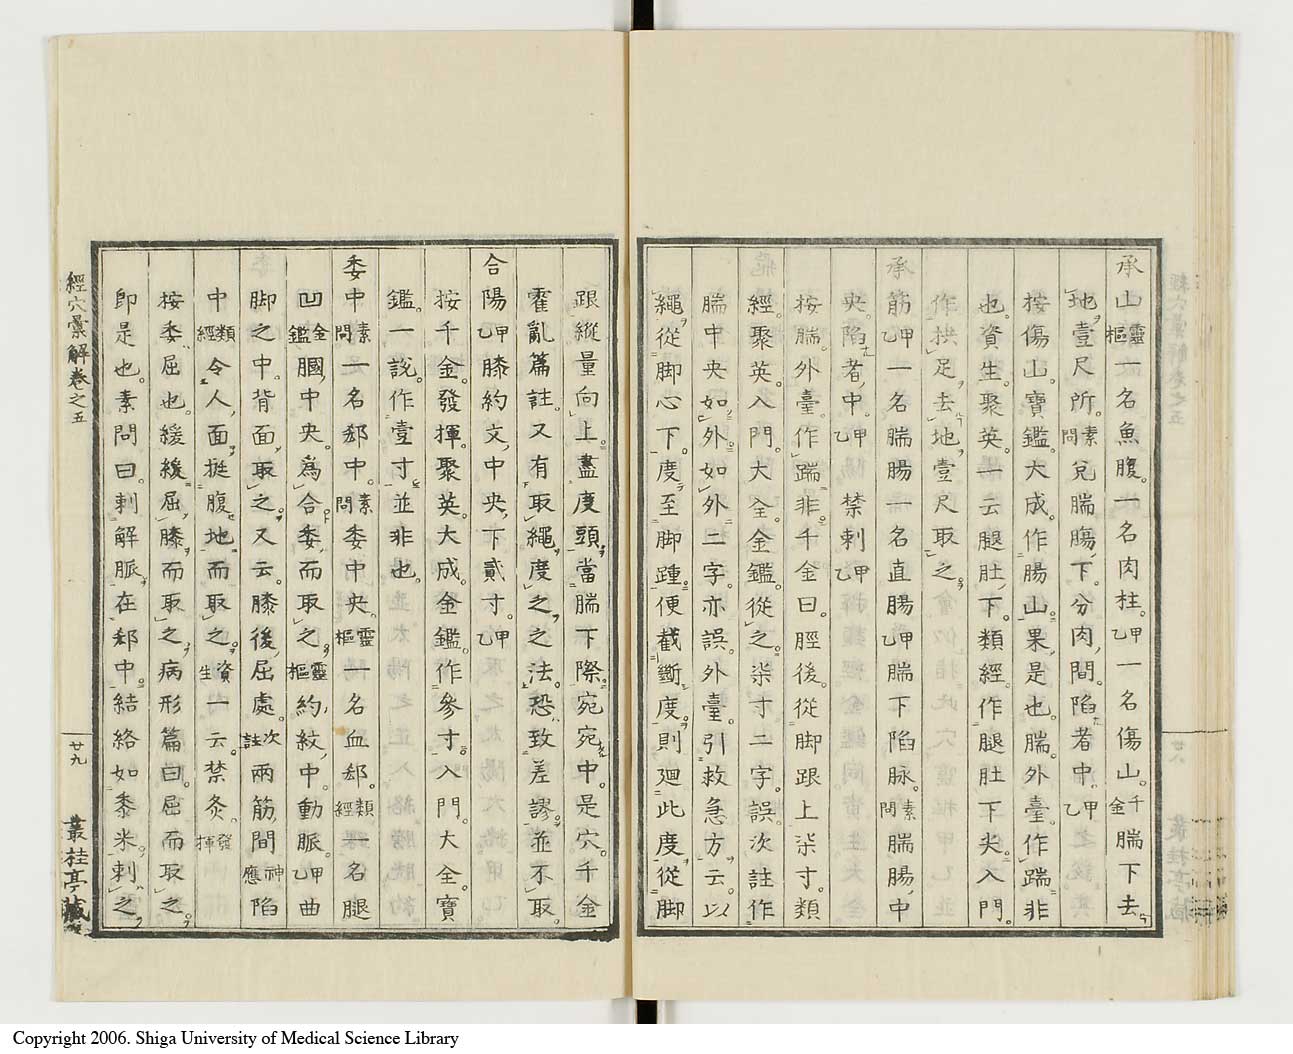 承山靈樞一名魚腹。一名肉柱。甲乙一名傷山。千金腨下去
地壹尺所。素問兌腨腸下。分肉間陷者中甲乙
按傷山。寶鑑大成。作腸山。果是也。腨。外臺。作踹非
也。資生。聚英。一云腿肚下。類經。作腿肚下尖。入門。
作拱足。去地壹尺取之。
承筋甲乙一名腨腸一名直腸甲乙腨下陷脉。素問腨腸中
央。陷者中。甲乙禁刺甲乙
按腨。外臺。作踹非。千金曰。脛後。從脚跟上柒寸。類
經。聚英。入門。大全。金鑑。從之。柒寸二字。誤。次註作
腨中央如外。如外二字亦誤。外臺。引救急方云。以
繩從脚心下度。至脚踵。便截斷度。則廻此度從脚
跟縱量向上。盡度頭。當腨下際。宛宛中。是穴。千金
霍亂篇註。又有取繩度之之法。恐致差謬。並不取
合陽甲乙膝約文中央下貳寸。甲乙
按千金。發揮。聚英。大成。金鑑。作參寸。入門。大全。寶
鑑。一說。作壹寸。並非也。
委中素問一名郄中。素問委中央。靈樞一名血郄。類經一名腿
凹金鑑膕中央。爲合委而取之。靈樞約紋中動脈。甲乙曲
脚之中。背面取之。又云。膝後屈處。次註兩筋間神應陷
中類經令人面挺腹地而取之。資生一云。禁灸。發揮
按委屈也。緩緩屈膝而取之。病形篇曰。屈而取之。
卽是也。素問曰。刺解脈。在郄中。結絡如黍米。刺之
經穴彙解卷之五
廿九
叢桂亭藏